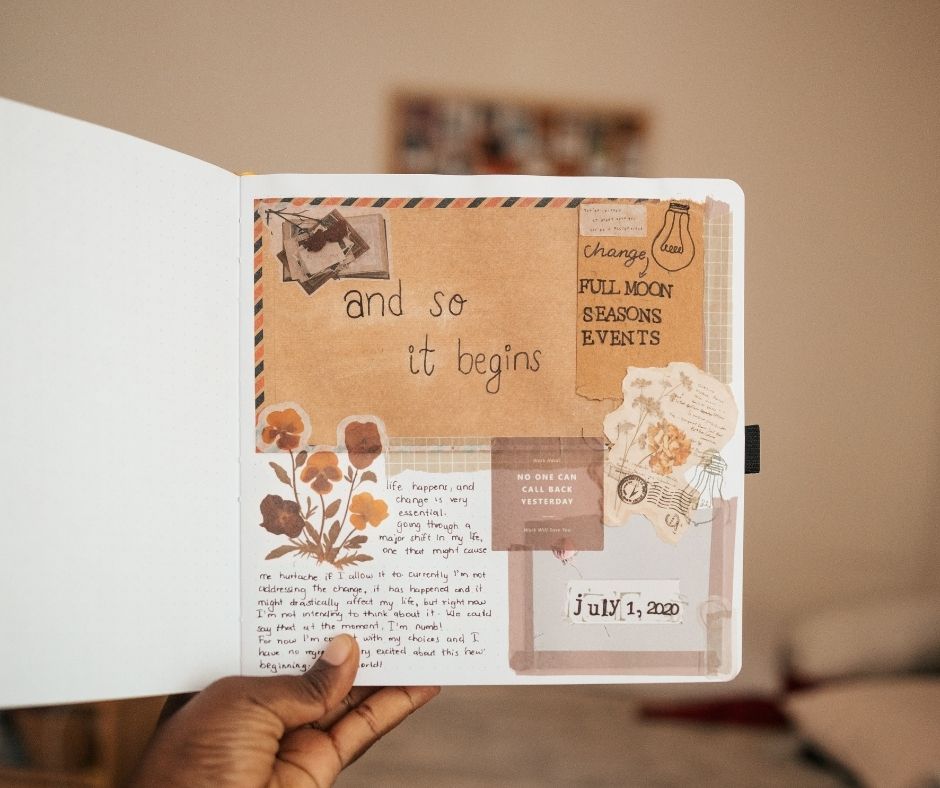 and so
it begins
change,
FULL MOON
SEASONS
EVENTS
life happens, and
change is very
essential.
going through a
major shift in my life,
one that might cause
me hurtache if I allow it to. Currently I'm not
addressing the change, it has happened and it
might drastically affect my life, but right now
I'm not intending to think about it. We could
say that at the moment, I'm numb!
For now I'm with my choices and I
have no excited about this new
beginning.
Work Hard
NO ONE CAN
CALL BACK
YESTERDAY
Work Will Save You
july 1, 2020